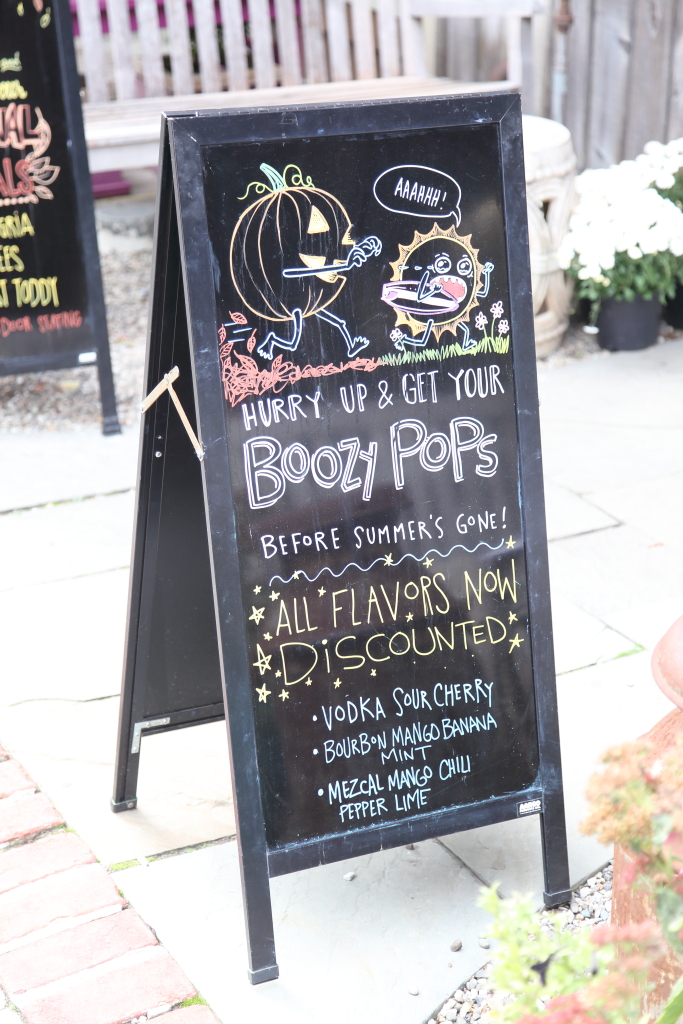 AAAHHH!
HURRY UP & GET YOUR
BOOZY POPS
BEFORE SUMMER'S GONE!
ALL FLAVORS NOW
DISCOUNTED
• VODKA SOUR CHERRY
• BOURBON MANGO BANANA
MINT
• MEZCAL MANGO CHILI
PEPPER LIME
TODDY